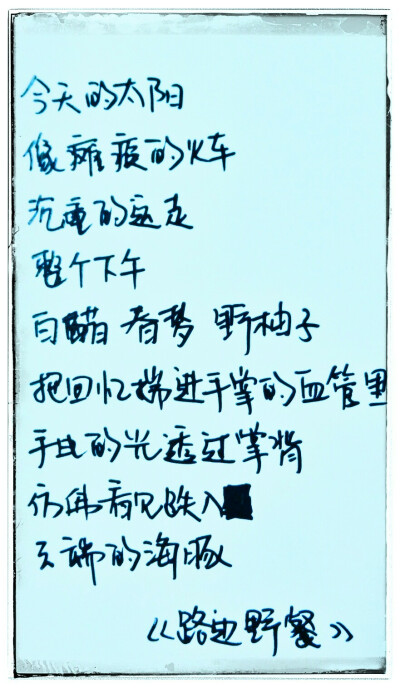 今天的太阳
像瘫痪的火车
沉重的运走
整个下午
白醋 春梦 野柚子
把回忆揣进手掌的血管里
手电的光透过掌背
仿佛看见跌入
云端的海豚
《路边野餐》